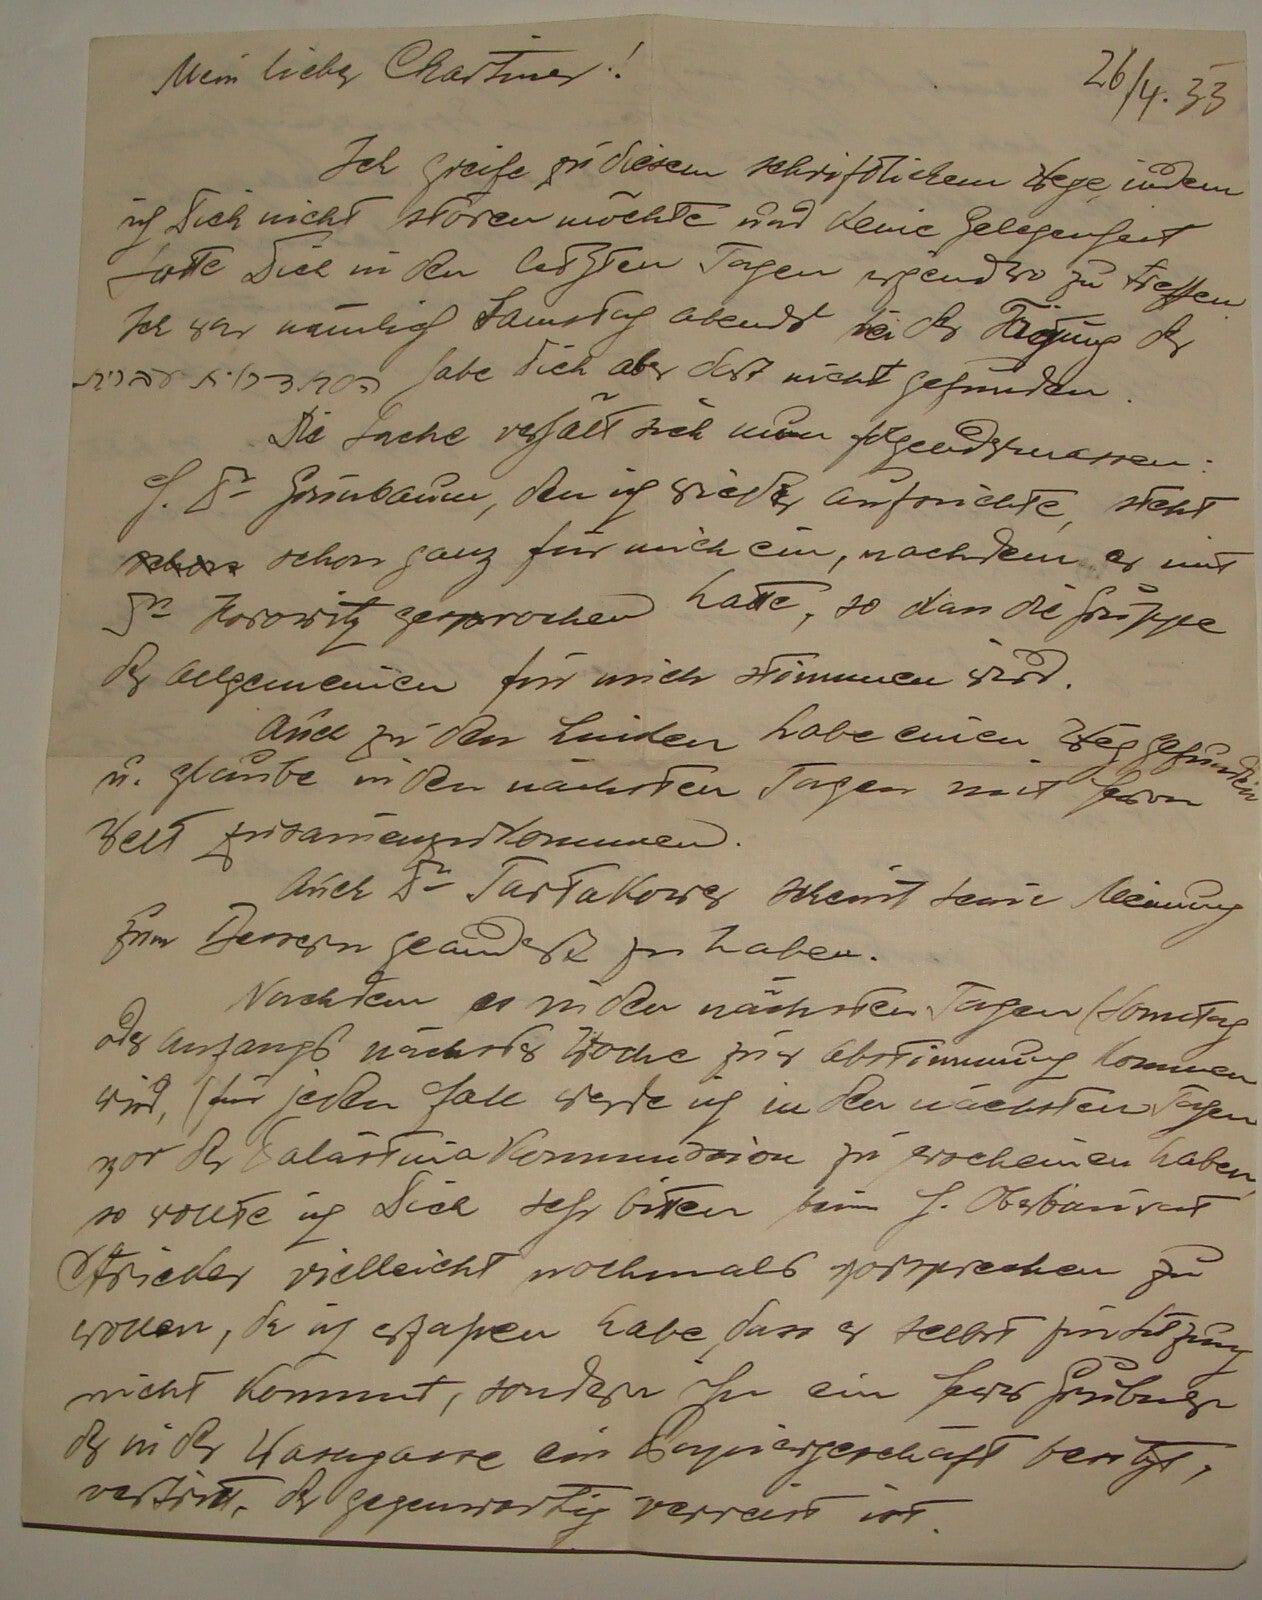 Mein lieber Chartiner!
26/4. 33
Ich greife zu diesem schriftlichem Wege, indem
ich Dich nicht stören möchte und keine Gelegenheit
hatte Dich in den letzten Tagen irgendwo zu treffen.
Ich war nämlich Samstag abends bei der Tagung der
הסתדרות עברית habe Dich aber dort nicht gefunden.
Die Sache verhält sich nun folgendermassen:
H. Dr Grünbaum, den ich wieder aufrichte, steht
schon ganz für mich ein, nachdem er mit
Dr Horowitz gesprochen hatte, so dass die Gruppe
der Allgemeinen für mich stimmen wird.
Auch zu den Linken habe einen Weg gefunden
u. glaube in den nächsten Tagen mit Herrn
Welt zusammenzukommen.
Auch Dr Tartakower scheint seine Meinung
zum Bessern geändert zu haben.
Nachdem es in den nächsten Tagen (Sonntag
oder anfangs nächster Woche zur Abstimmung kommen
wird, (für jeden Fall werde ich in den nächsten Tagen
vor der Palästina Kommission zu erscheinen haben,
so wollte ich Dich sehr bitten beim H. Oberbaurat
Stricker vielleicht nochmals vorsprechen zu
wollen, da ich erfahren habe, dass er selbst zur Sitzung
nicht kommt, sondern ihn ein Herr Grubner
der in der Wasagasse ein Papiergeschäft besitzt,
vertritt, der gegenwärtig verreist ist.